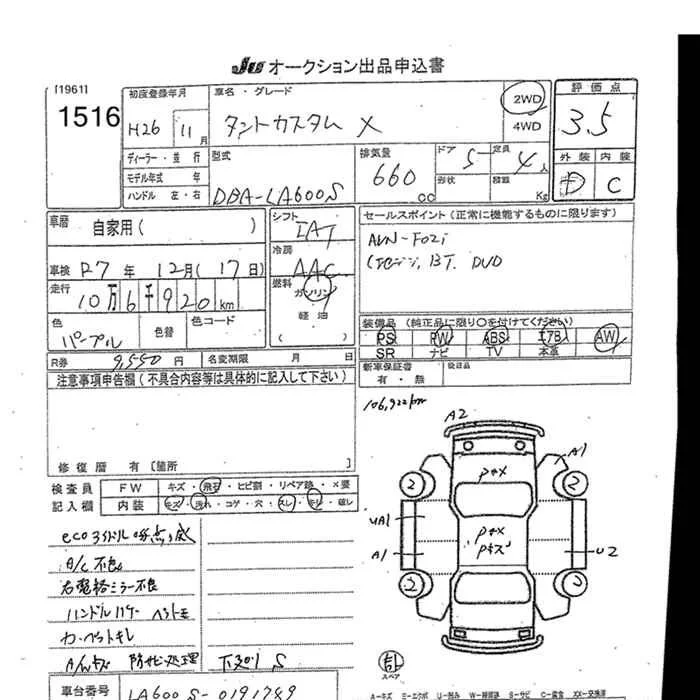 JU オークション出品申込書
[1961]
1516
初度登録年月
H26 11月
車名・グレード
タントカスタム X
2WD
4WD
評価点
3.5
外装 内装
D C
ディーラー・並行
モデル年式 年
ハンドル 左・右
型式
DBA-LA600S
排気量
660 cc
ドア 5 定員 4人
形状 積載 Kg
車歴 自家用( )
シフト
IAT
冷房
AAC
車検 R7年 12月(17日)
走行 10万6千920km
燃料 ガソリン
軽油
( )
色 パープル 色替 色コード
セールスポイント(正常に機能するものに限ります)
BT. DVD
装備品(純正品に限り○を付けてください)
PS PW ABS エアB AW
SR ナビ TV 本革
R券 9,550円 名変期限 月 日
新車保証書 後日品
有・無
注意事項申告欄(不具合内容等は具体的に記入して下さい)
修復歴 有〔箇所 〕
106,922km
検査員 FW キズ・飛石・ヒビ割・リペア跡・X要
記入欄 内装 キズ・汚れ・コゲ・穴・スレ・キレ・破レ
A/C不良
右電格ミラー不良
カーペットキレ
防サビ処理
下廻り S
車台番号 LA600S-0191789
A2
A1
2
2
UA1
A1
U2
2
2
スペア
A-キズ